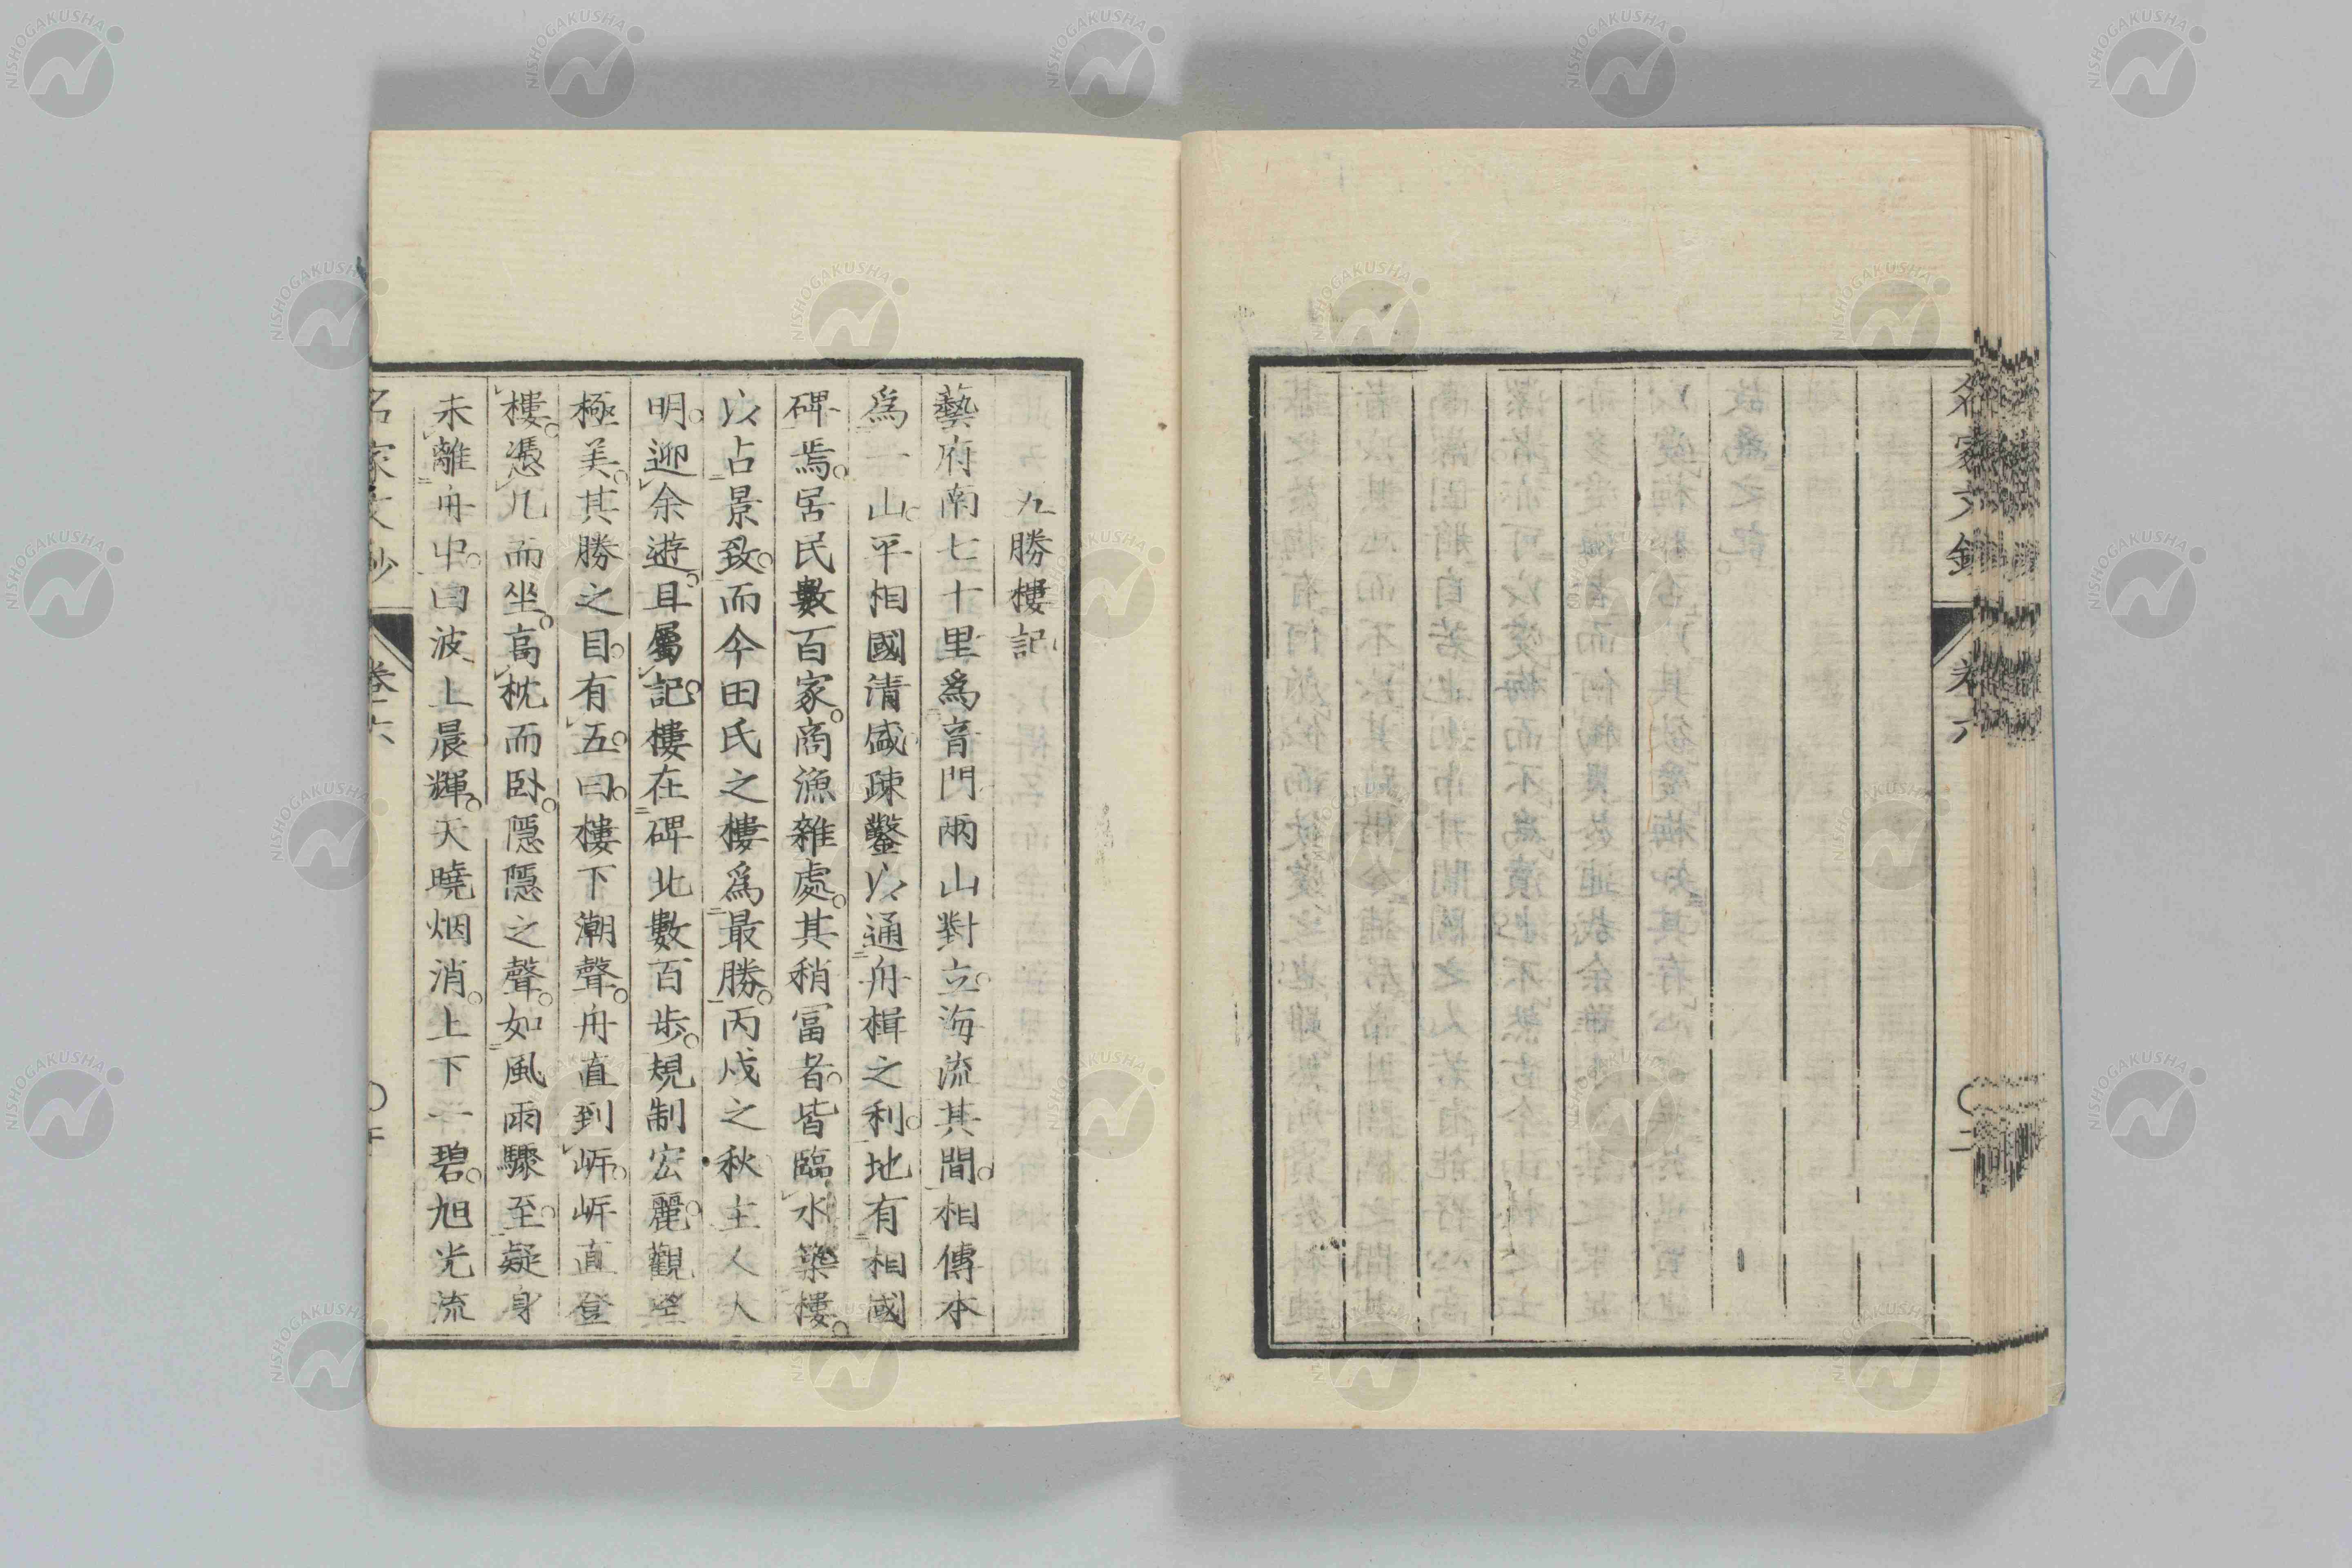 名家文鈔 卷六 〇二
九勝樓記
藝府南七十里爲音門兩山對立海流其間相傳本
爲一山平相國清盛疎鑿以通舟楫之利地有相國
碑焉居民數百家商漁雜處其稍冨者皆臨水築樓
以占景致而今田氏之樓爲最勝丙戌之秋主人人
明迎余遊且屬記樓在碑北數百步規制宏麗觀望
極美其勝之目有五曰樓下潮聲舟直到㟁㟁直登
樓憑几而坐高枕而臥隱隱之聲如風雨驟至疑身
未離舟中曰波上晨輝天曉烟消上下一碧旭光流
名家文鈔 卷六
NISHOGAKUSHA